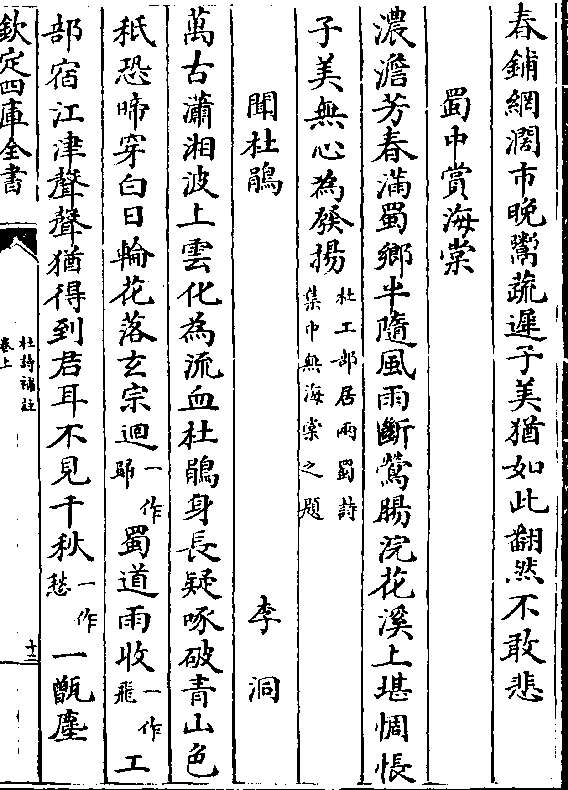 春鋪網濶市晚鬻蔬遲子美猶如此翻然不敢悲
蜀中賞海棠
濃澹芳春滿蜀鄉半隨風雨斷鶯腸浣花溪上堪惆悵
子美無心為發揚杜工部居兩蜀詩集中無海棠之題
聞杜鵑
李洞
萬古瀟湘波上雲化為流血杜鵑身長疑啄破青山色
秪恐啼穿白日輪花落玄宗迴一作歸蜀道雨收一作飛工
部宿江津聲聲猶得到君耳不見千秋一作愁一甑塵
欽定四庫全書
杜詩補註
卷上
十三